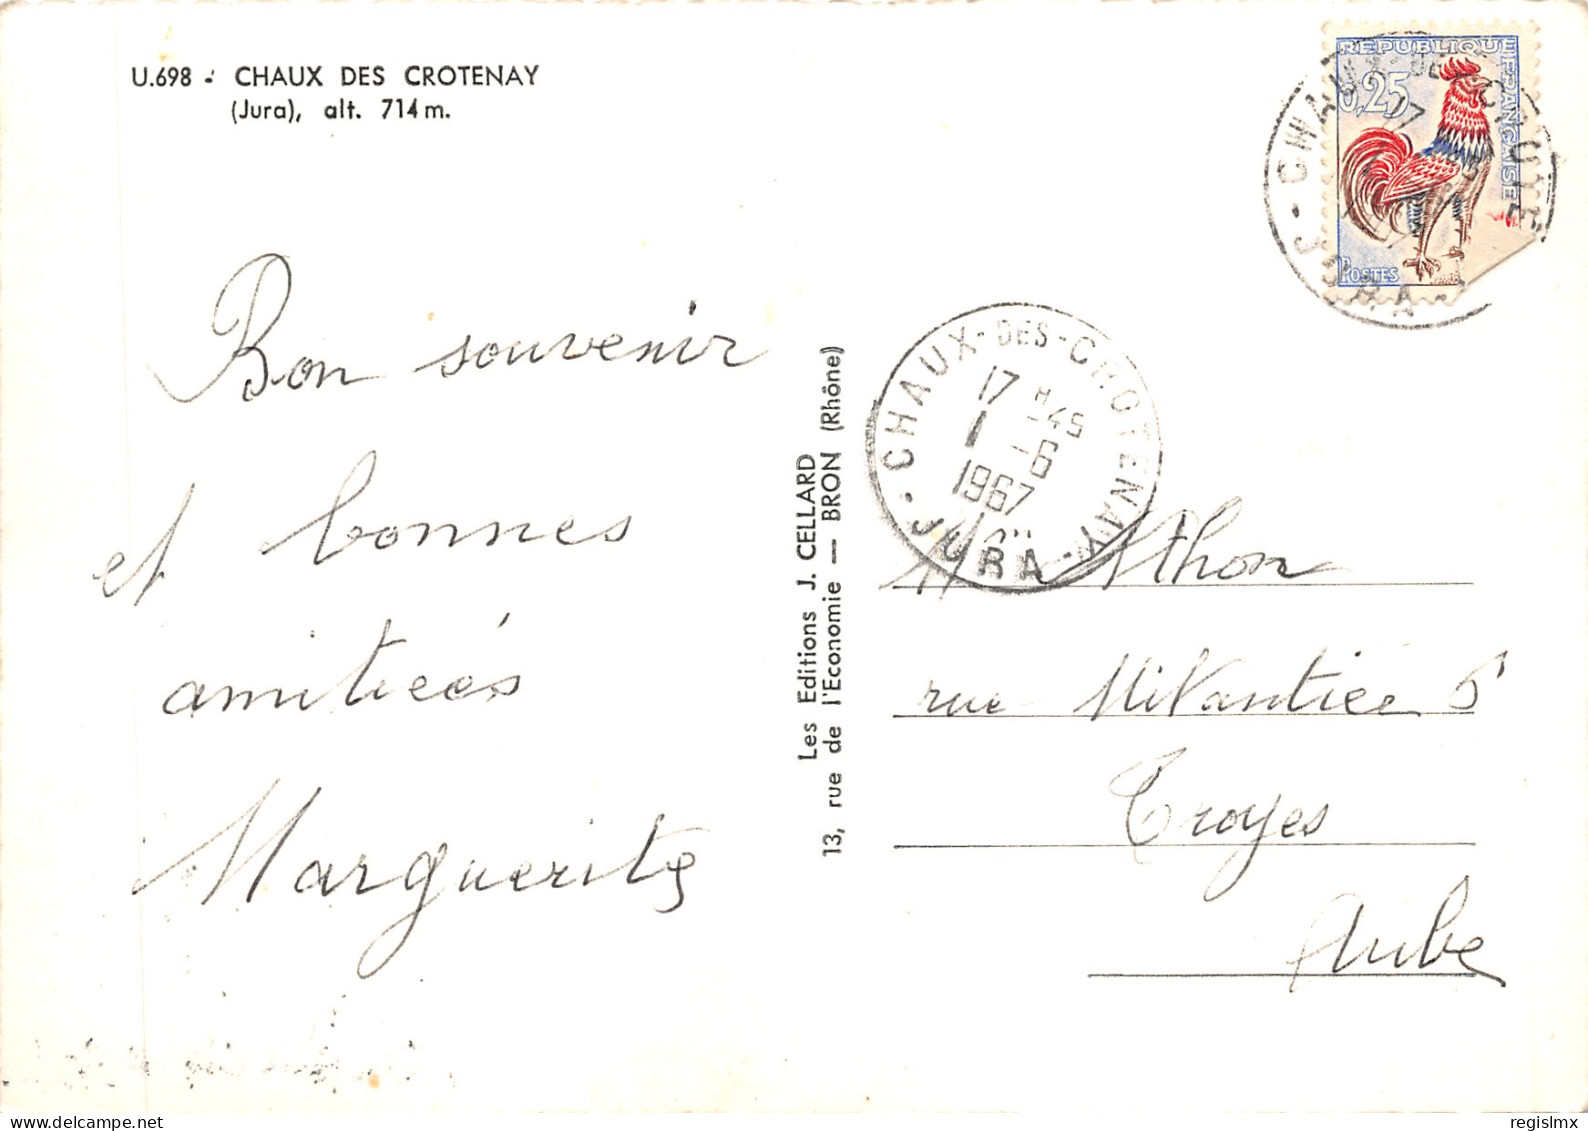 U.698 - CHAUX DES CROTENAY
(Jura), alt. 714 m.
REPUBLIQUE FRANÇAISE
0,25
POSTES
CHAUX-DES-CROTENAY
JURA
Bon souvenir
et bonnes
amitiés
Marguerite
Les Editions J. CELLARD
13, rue de l'Economie — BRON (Rhône)
CHAUX-DES-CROTENAY
17 H 45
1 -6
1967
JURA
Mthon
rue
Troyes
Aube
regislmx